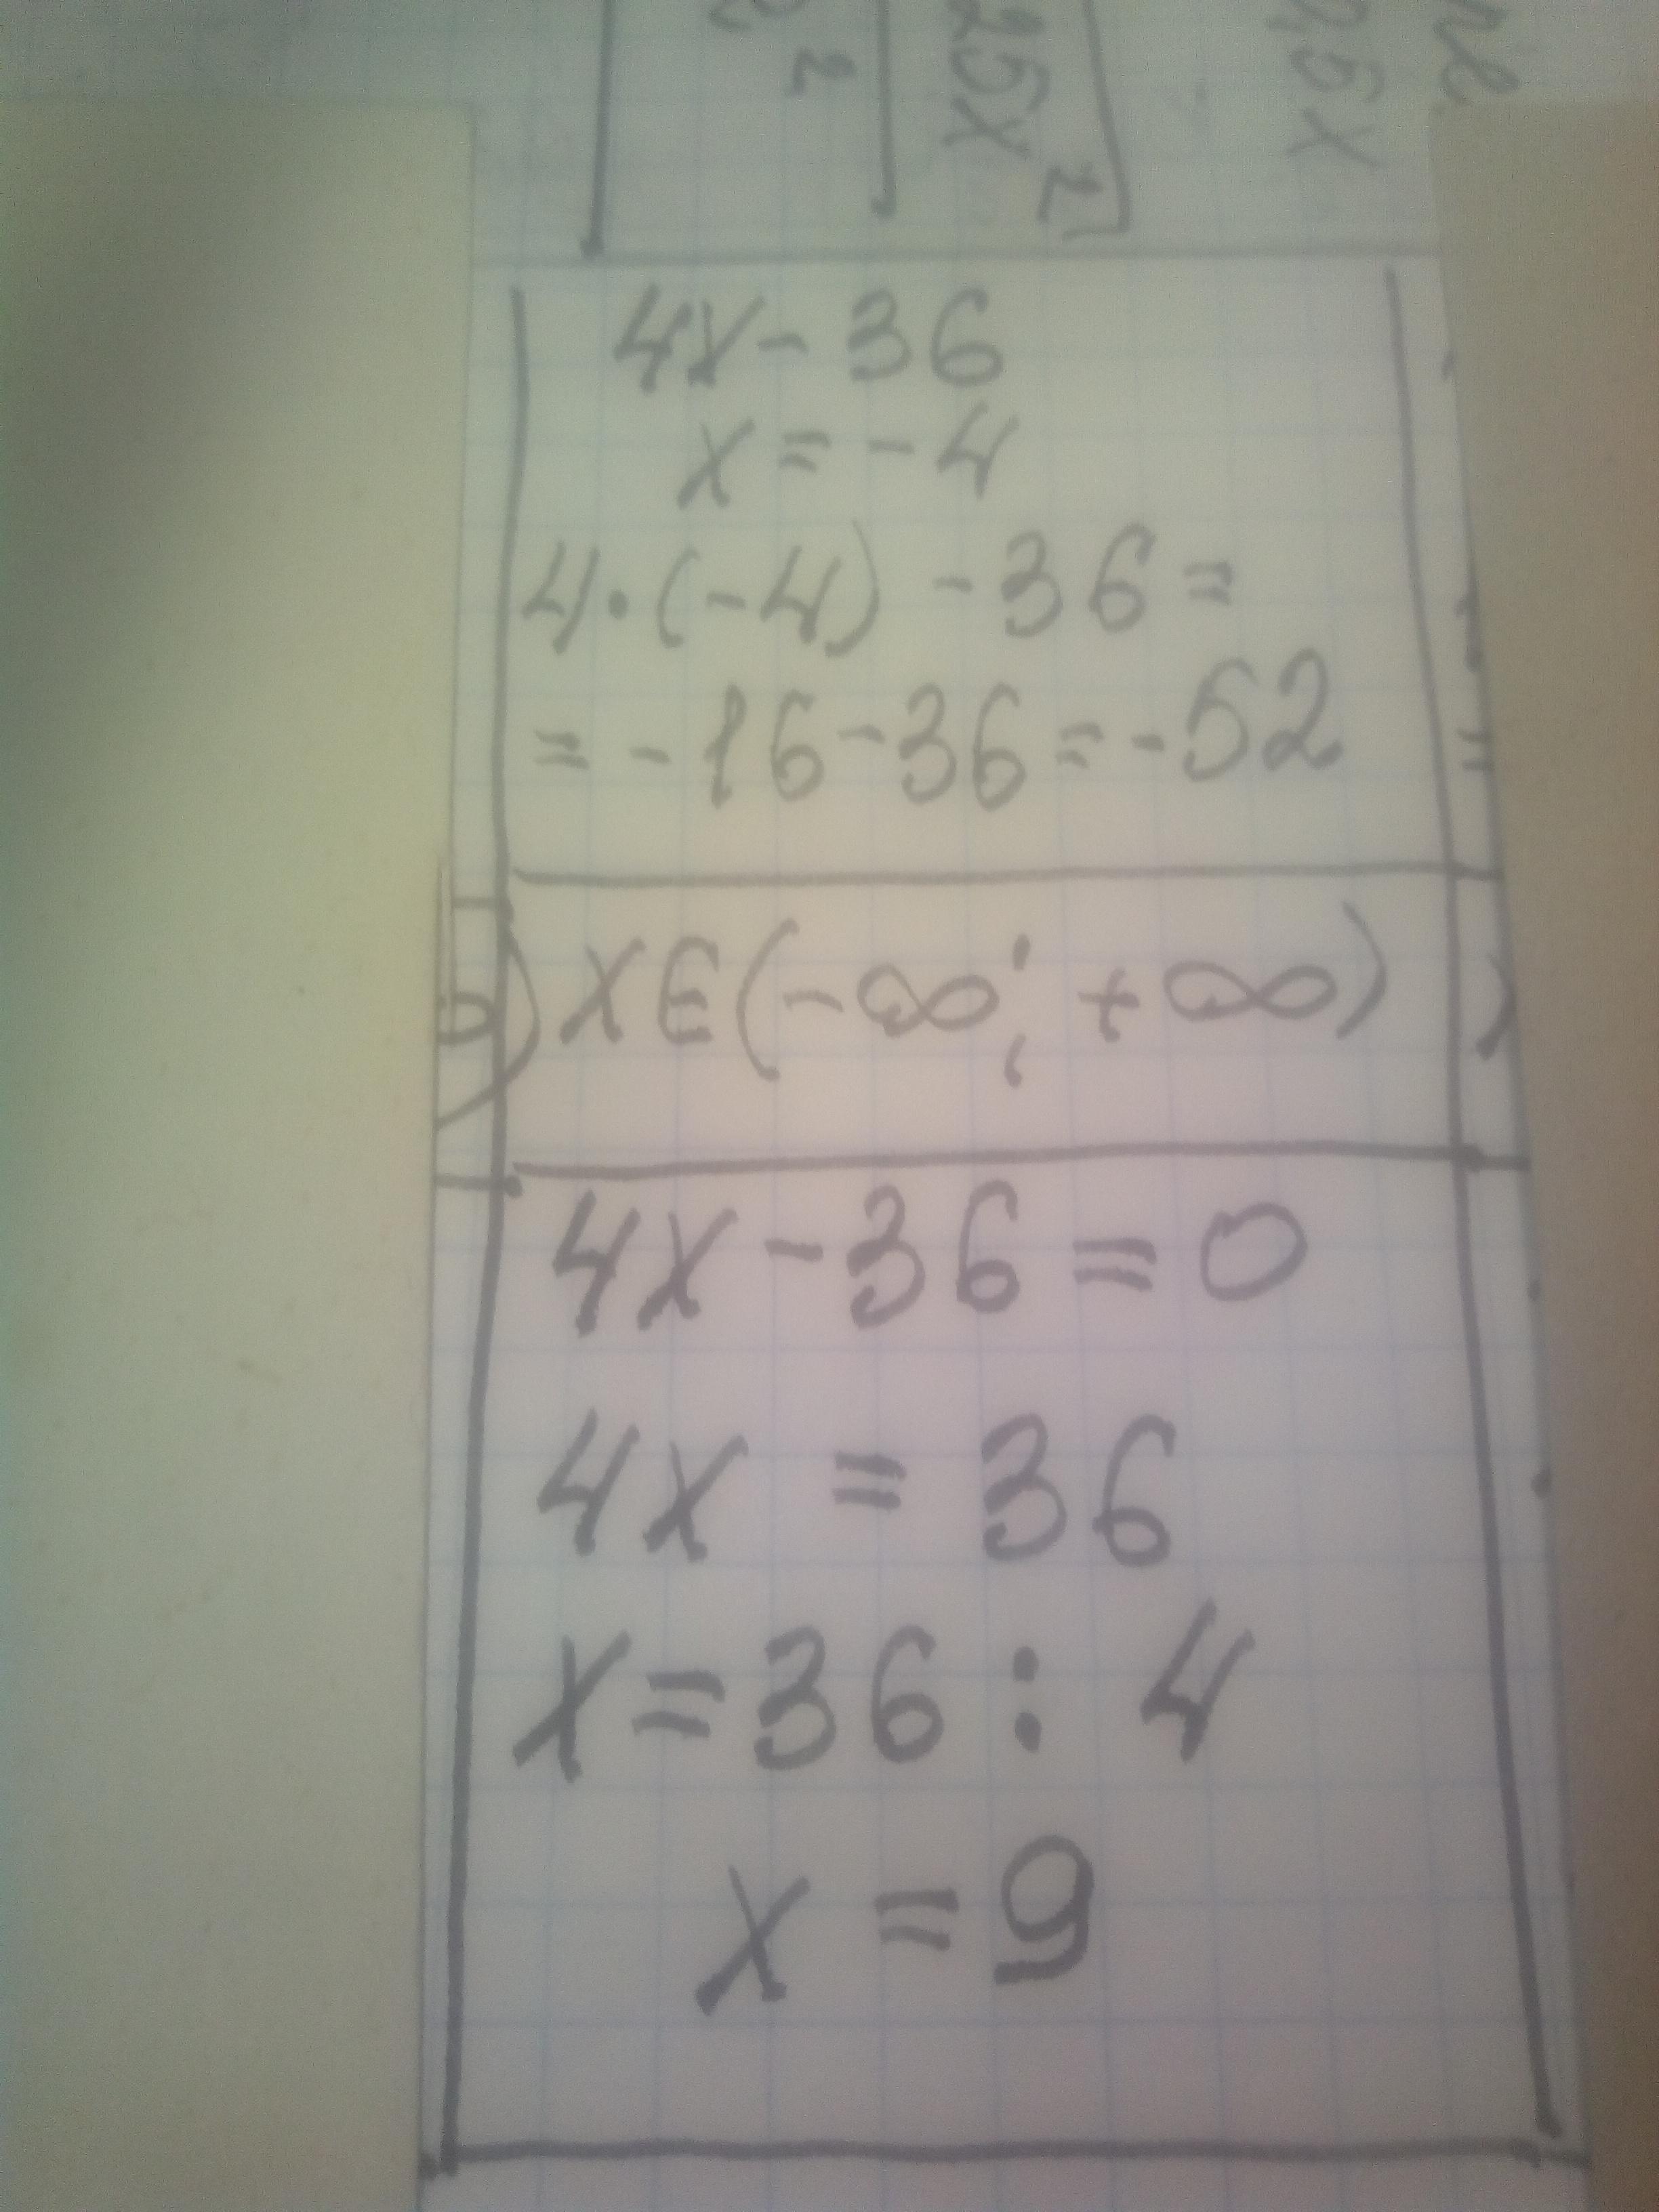 4x - 36
x = -4
4·(-4) - 36 =
= -16 - 36 = -52
x ∈ (-∞; +∞)
4x - 36 = 0
4x = 36
x = 36 : 4
x = 9